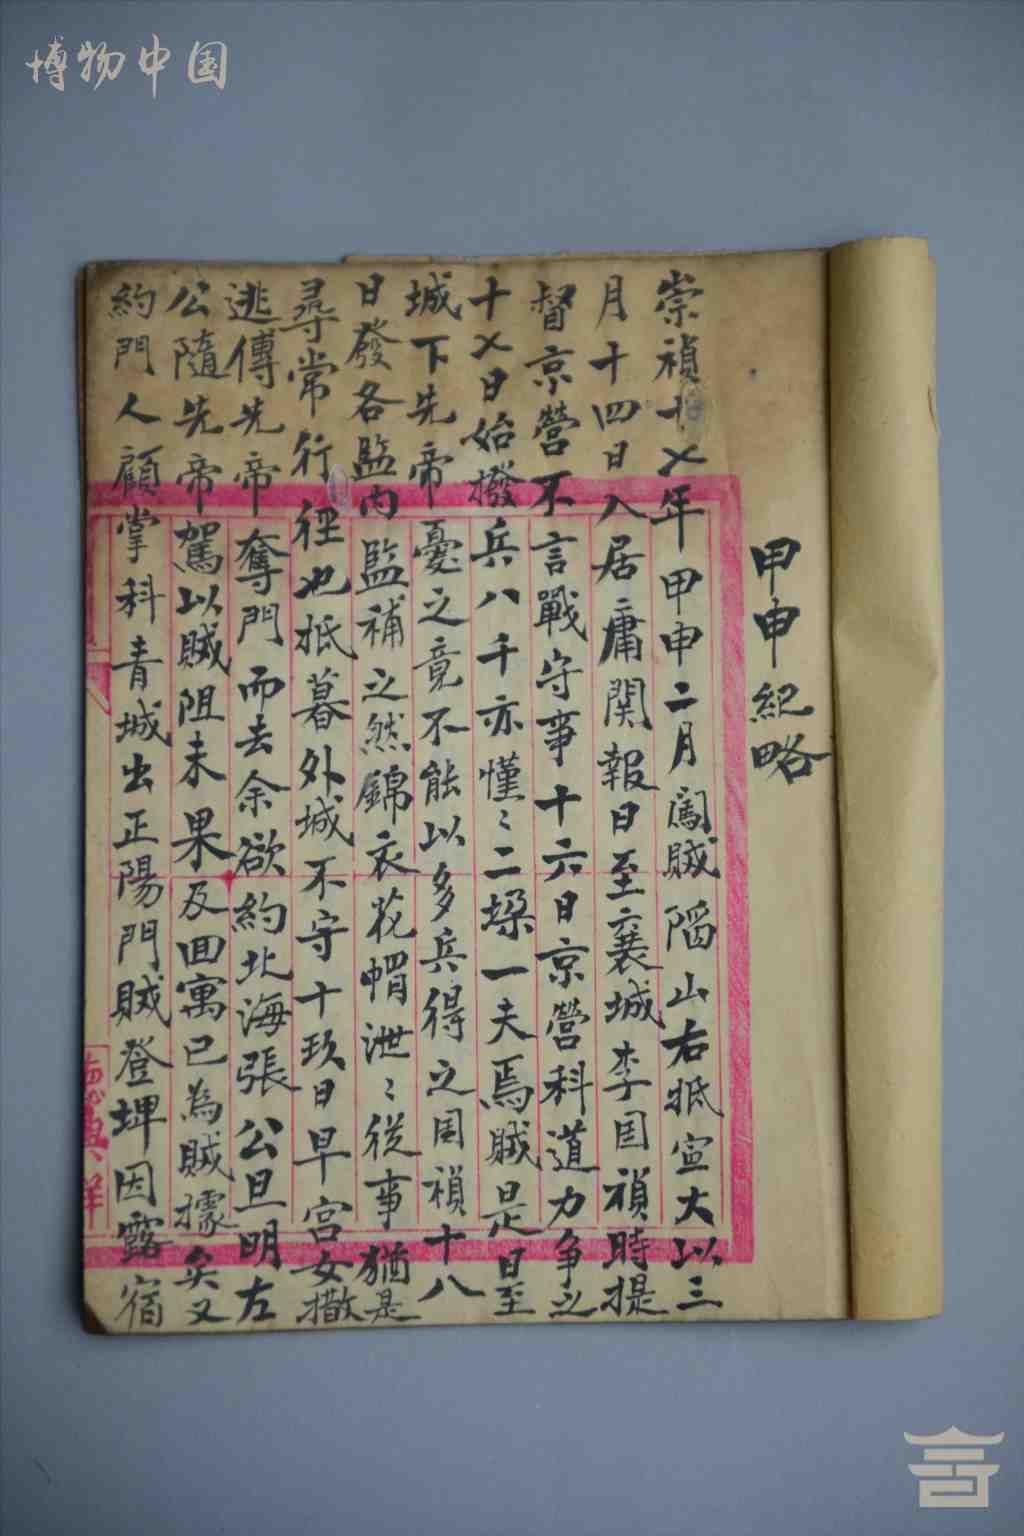 博物中国
甲申紀略
崇禎十乄年甲申二月闖賊陷山右抵宣大以三
月十四日入居庸関報日至襄城李国禎時提
督京營不言戰守事十六日京營科道力争之
十乄日始撥兵八千亦懂〻二垜一夫焉賊是日至
城下先帝憂之竟不能以多兵得之国禎十八
日發各監内監補之然錦衣花帽泄〻從事猶是
尋常行徑也抵暮外城不守十玖日早宮女撒
逃傳先帝奪門而去余欲約北海張公旦明左
公隨先帝駕以賊阻未果及囬寓已為賊據矣又
約門人顧掌科青城出正陽門賊登埤因露宿